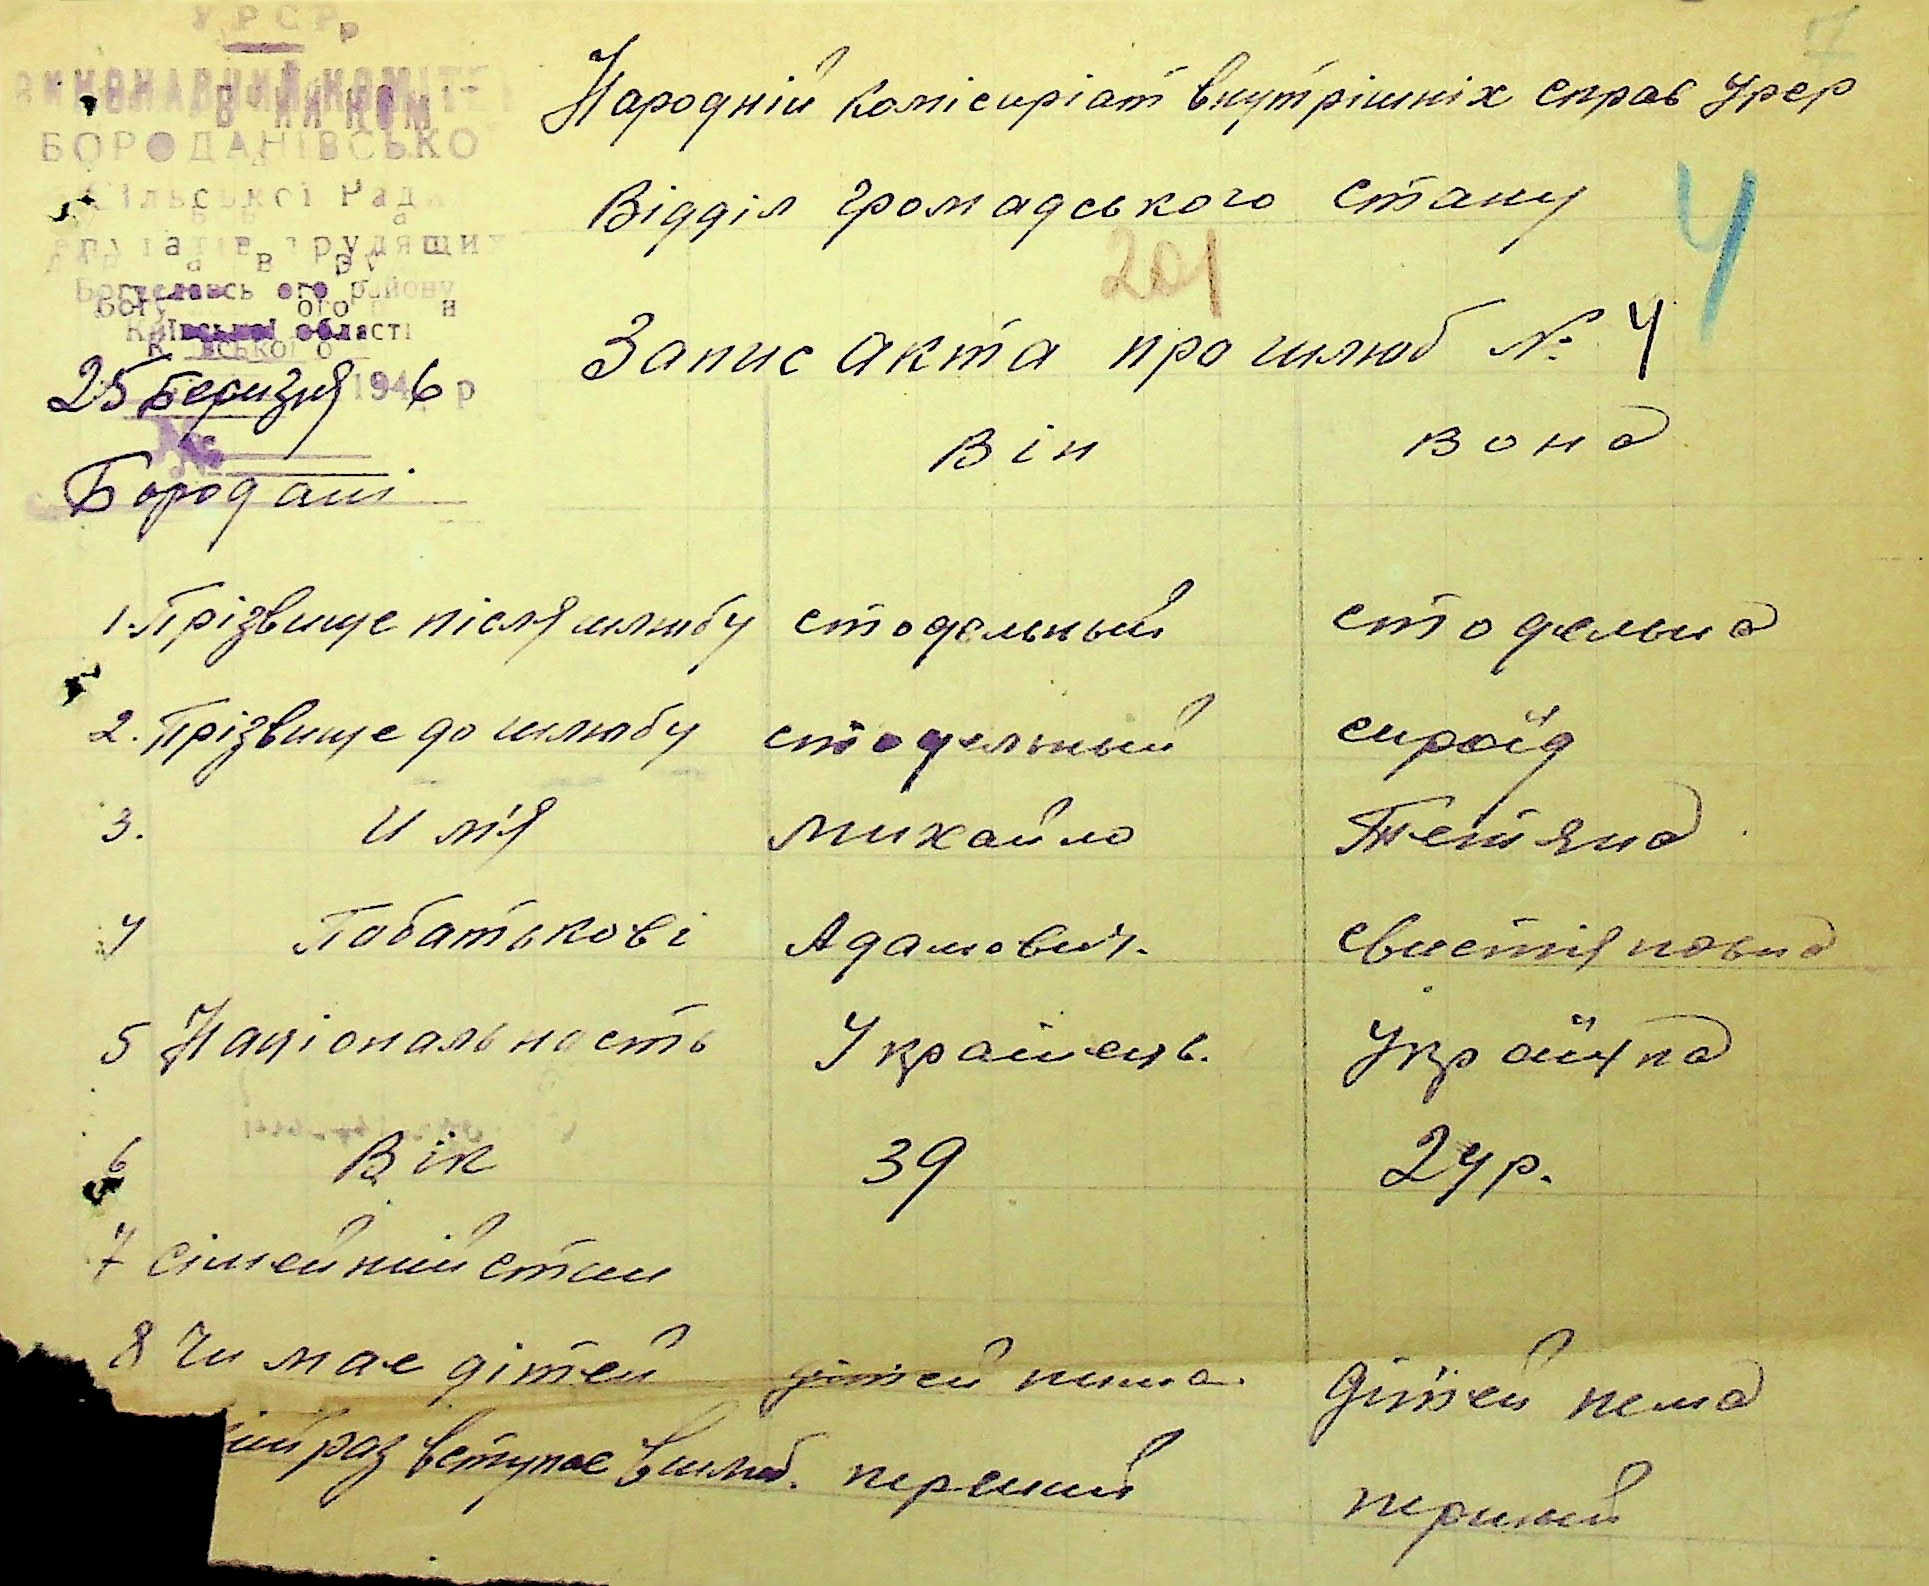 УРСР
ВИКОНАВЧИЙ КОМІТЕТ
БОРОДАНІВСЬКО
Сільської Ради
депутатів трудящих
Богуславського району
Київської області
25 Березня 1946 р
№
Бородані
Народній комісиріат внутрішніх справ Урср
Відділ громадського стану
201
4
Запис акта про шлюб № 4
Він Вона
1. Прізвище після шлюбу стодольный стодольна
2. Прізвище до шлюбу стодольный сироїд
3. Имя Михайло Тетяна
4 Побатькові Адамович. Свистіяновна
5 Національность Українець. Українка
6 Вік 39 24 р.
7 Сімейний стан
8 Чи має дітей дітей нима. дітей нема
ий раз вступає в шлюб. перший перший